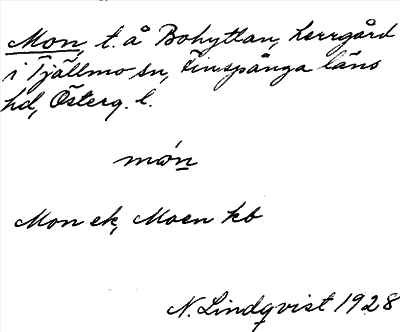 Mon, t. å Bohyttan, herrgård
i Tjällmo sn, Finspånga läns
hd, Österg. l.
món
Mon ek, Moen kb
N. Lindqvist 1928